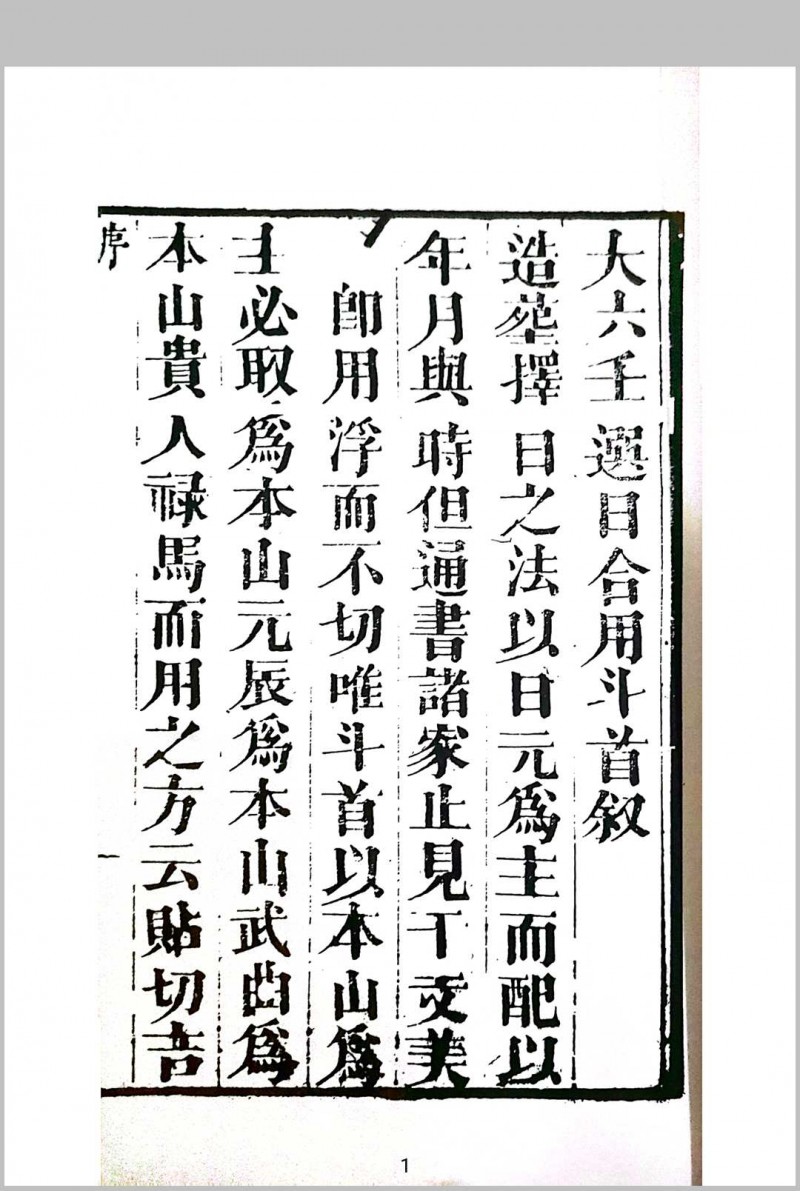 大六壬選日合用斗首叙
造塟擇日之法以日元爲主而配以
年月與時但通書諸家止見干支美
卽用浮而不切唯斗首以本山爲
主必取爲本山元辰爲本山武曲爲
本山貴人祿馬而用之方云貼切吉
序
一
1